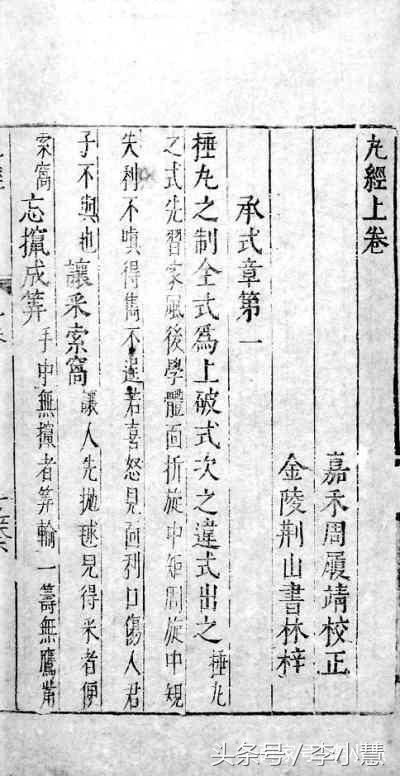 丸經上卷
嘉禾周履靖校正
金陵荆山書林梓
承式章第一
捶丸之制全式爲上破式次之違式出之捶丸
之式先習家風後學體面折旋中矩周旋中規
失利不嗔得雋不逞若喜怒見面利口傷人君
子不與也讓采索窩讓人先拋毬見得采者便
索窩忘攛成筭手中無攛者筭輸一籌無鷹觜
头条号/李小慧